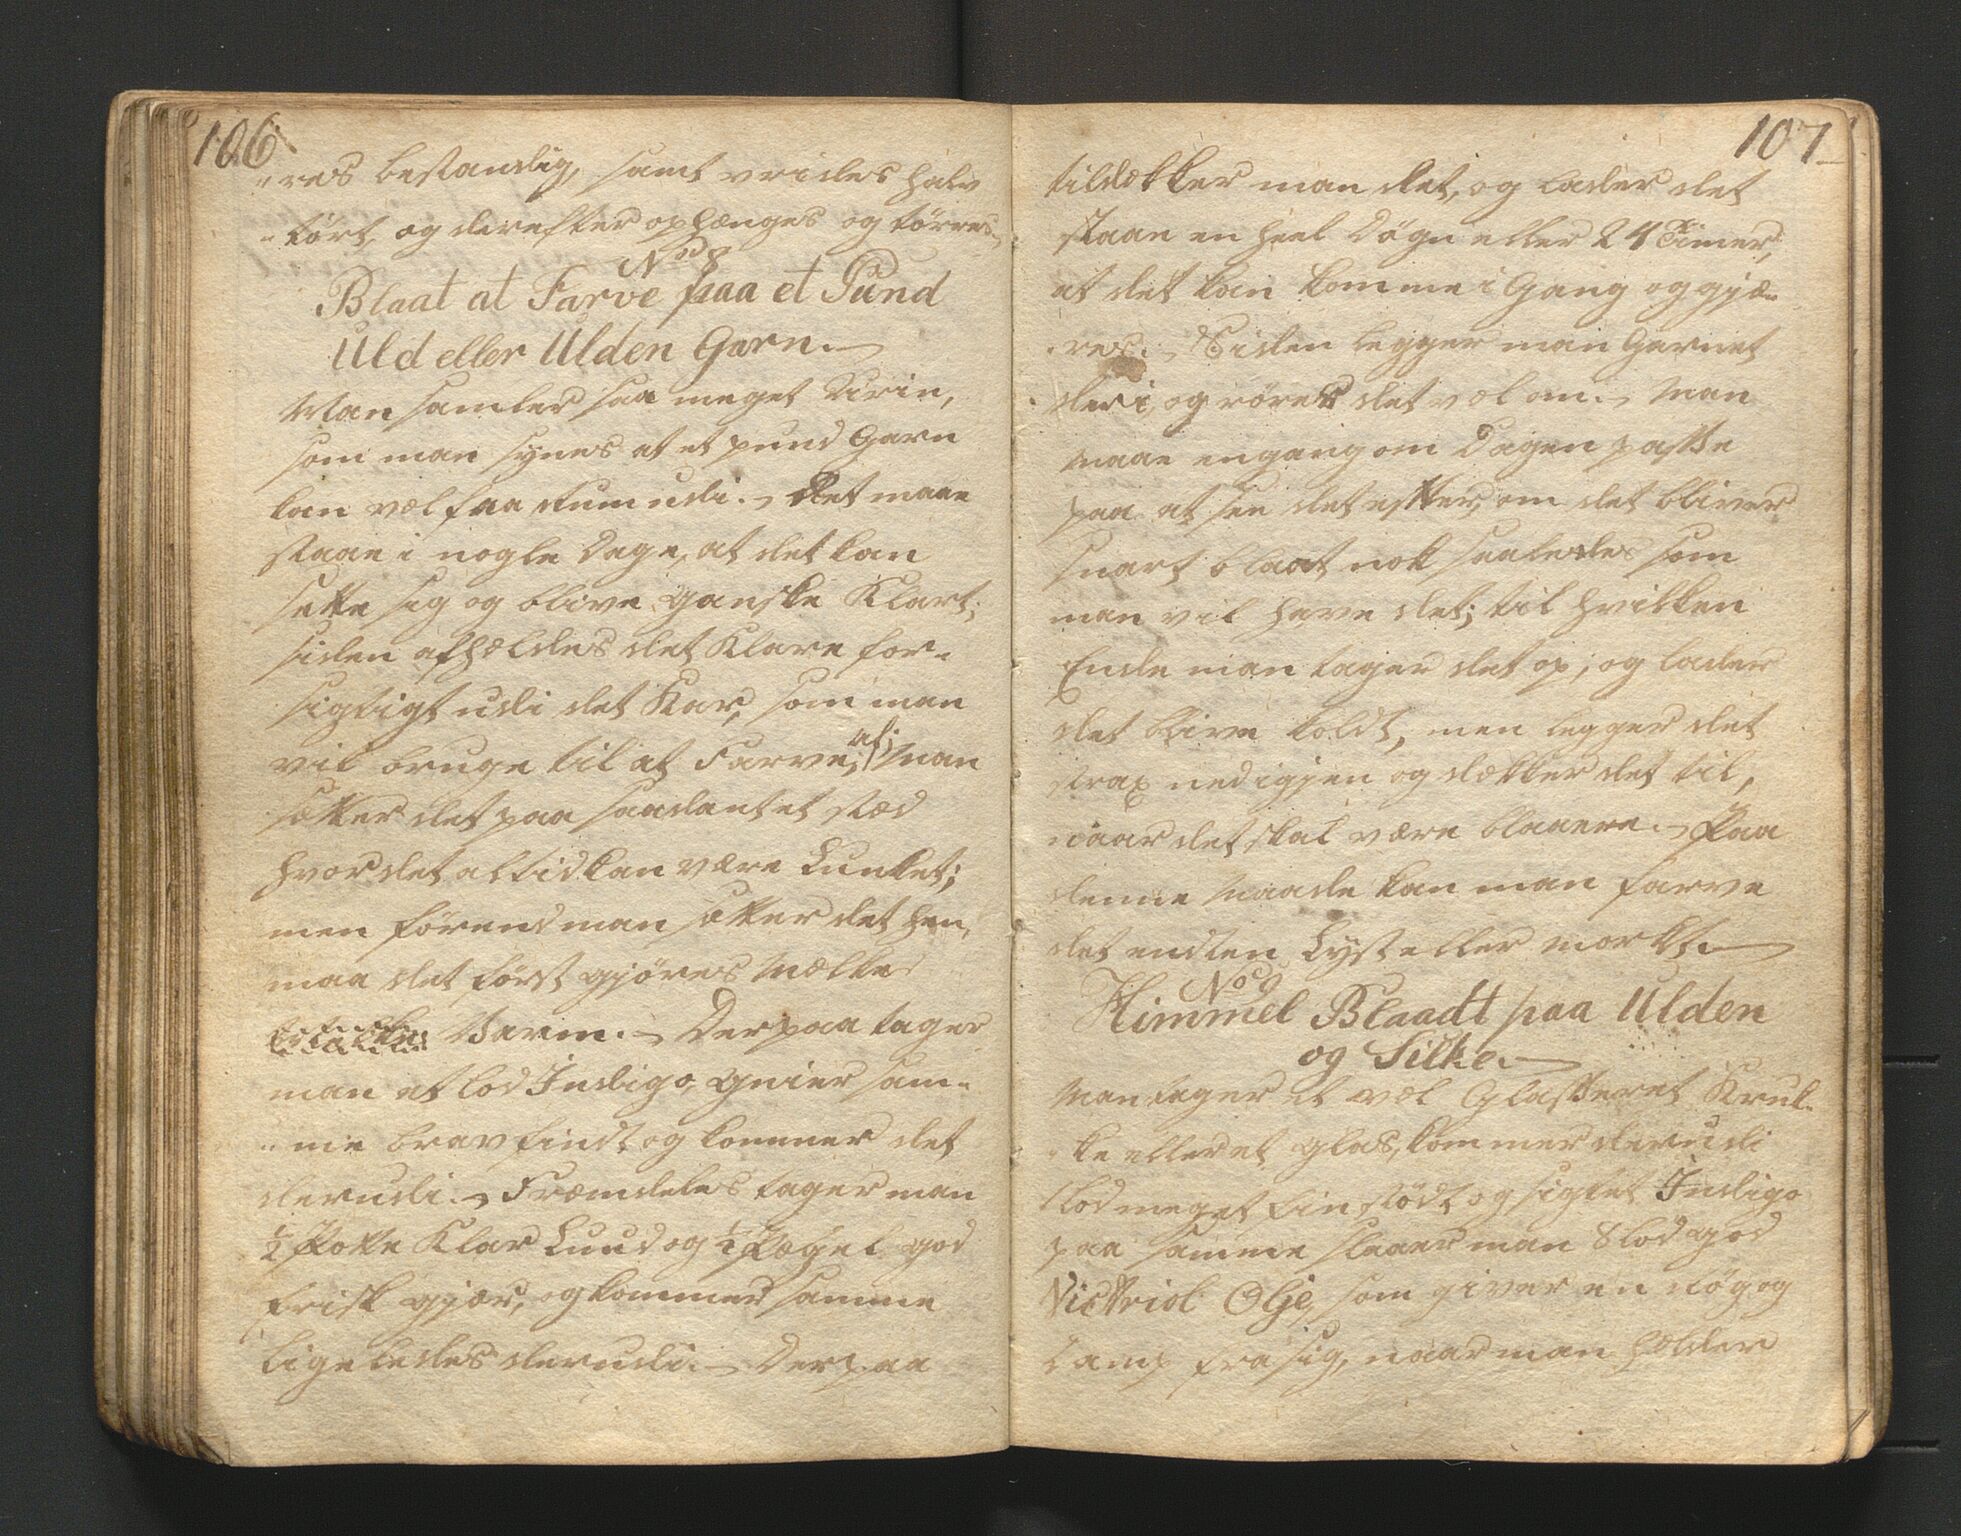 106
"res bestandig, samt vrides halv
"tørt, og derefter ophænges og tørres.
No 8
Blaat at Farve paa et Pund
Uld eller Ulden Garn.
Man samler saa meget Urin,
som man synes at et pund Garn
kan vel faa rum udi. Det maae
staae i nogle Dage, at det kan
sette sig og blive ganske Klart;
siden afhældes det Klare for-
sigtigt udi det Kar, som man
vil bruge til at Farve, af; Man
sætter det paa saadant et stæd
hvor det altid kan være Lunket;
men førend man sætter det hen,
maa det først gjøres Mælke
Varm. Derpaa tager
man et lod Indigo, gnier sam-
"me brav findt og kommer det
derudi. Fræmdeles tager man
½ Potte Klar Luud og ½ Pægel god
frisk gjær, og kommer samme
ligeledes derudi. Derpaa
107
tildækker man det, og lader det
staae en heel Døgn eller 24 Timer,
at det kan komme i Gang og gjæ-
"res. Siden legger man Garnet
deri, og røres det vel om. Man
maae engang om Dagen passe
paa at see det efter, om det bliver
snart blaat nok saaledes som
man vil have det; til hvilken
Ende man tager det op, og lader
det blive koldt, men legger det
strax ned igjen og dækker det til,
naar det skal være blaaere. Paa
denne Maade kan man farve
det endten Lyst eller morkt.
No 9
Himmel Blaadt paa Ulden
og Silke.
Man tager et vel Glasseret Kruk-
"ke eller et glas, kommer derudi
1 lod meget fin stødt og sigtet Indigo
paa samme slaaer man 8 lod god
Victriol Olje, som giver en røg og
Damp fra sig, naar man holder